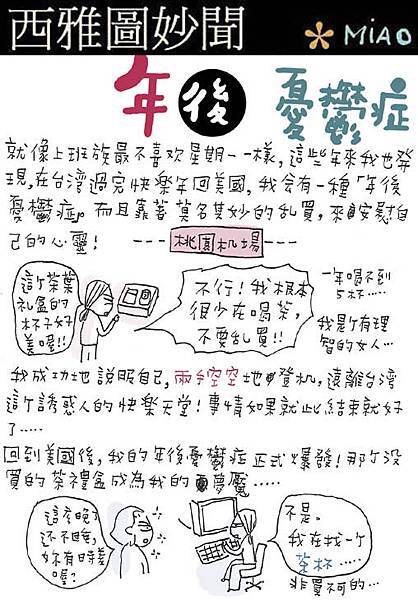 西雅圖妙聞
MiAO
年後憂鬱症
就像上班族最不喜欢星期一一樣，這些年來我也發
現，在台灣過完快樂年回美國，我会有一種「年後
憂鬱症」。而且靠著莫名其妙的乱買，來自己的心靈！
---桃園机場---
這个茶葉
礼盒的
杯子好
美喔!!
不行！我根本
很少在喝茶，
不要乱買!!
一年喝不到
5杯……
我是个有理
智的女人…
我成功地說服自己，兩手空空地登机，遠離台灣
這个誘惑人的快樂天堂！事情如果就此結束就好
了……
回到美國後，我的年後憂鬱症正式爆發！那个沒
買的茶禮盒成為我的夢魘……
這么晚了
还不睡，
妳有時差
喔？
不是。
我在找一个
茶杯……
非買不可的…